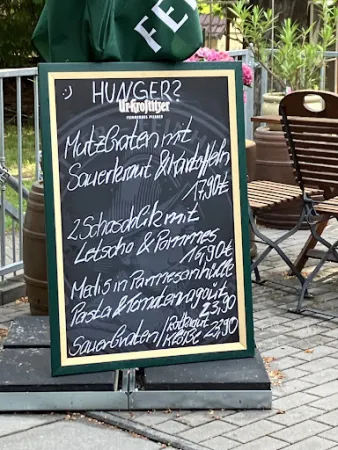 FE
:) HUNGER?
Ur-Krostitzer
FEINHERBES PILSNER
Mutzbraten mit
Sauerkraut & Kartoffeln
17,90€
2 Schaschlik mit
Letscho & Pommes
16,90€
Matis in Parmesanhülle
Pasta & Tomatenragoût
23,90
Sauerbraten/Rotkraut
Klöße 23,90